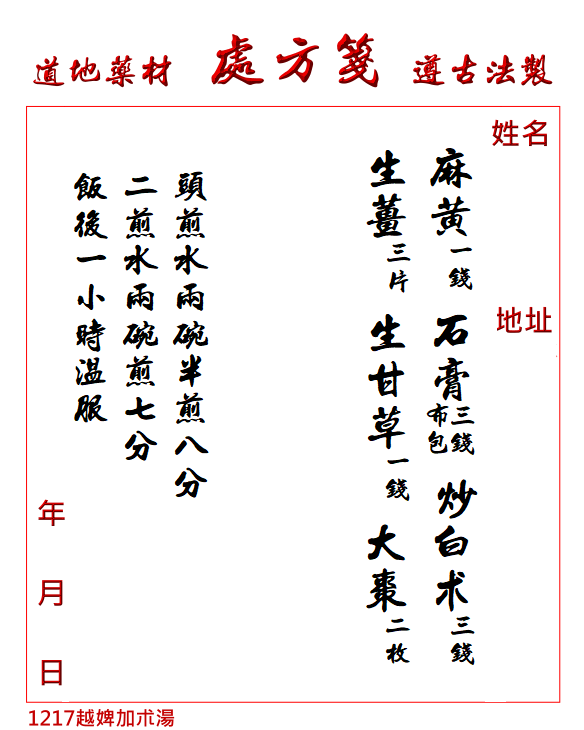 道地藥材 處方箋 遵古法製
姓名
地址
麻黃一錢 石膏三錢布包 炒白朮三錢
生薑三片 生甘草一錢 大棗二枚
頭煎水兩碗半煎八分
二煎水兩碗煎七分
飯後一小時溫服
年 月 日
1217越婢加朮湯